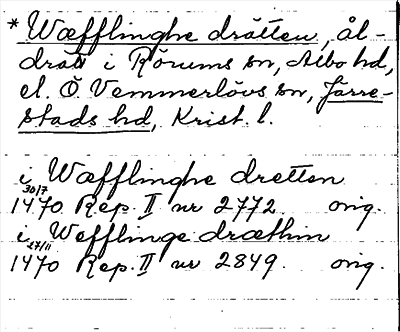 * Wæfflinghe drätten, ål-
drätt i Rörums sn, Albo hd,
el. Ö. Vemmerlövs sn, Järre-
stads hd, Krist. l.
i Wæfflinghe dretten
1470 30/7 Rep. II nr 2772. orig.
i Wefflinge dræthin
1470 27/11 Rep. II nr 2849. orig.